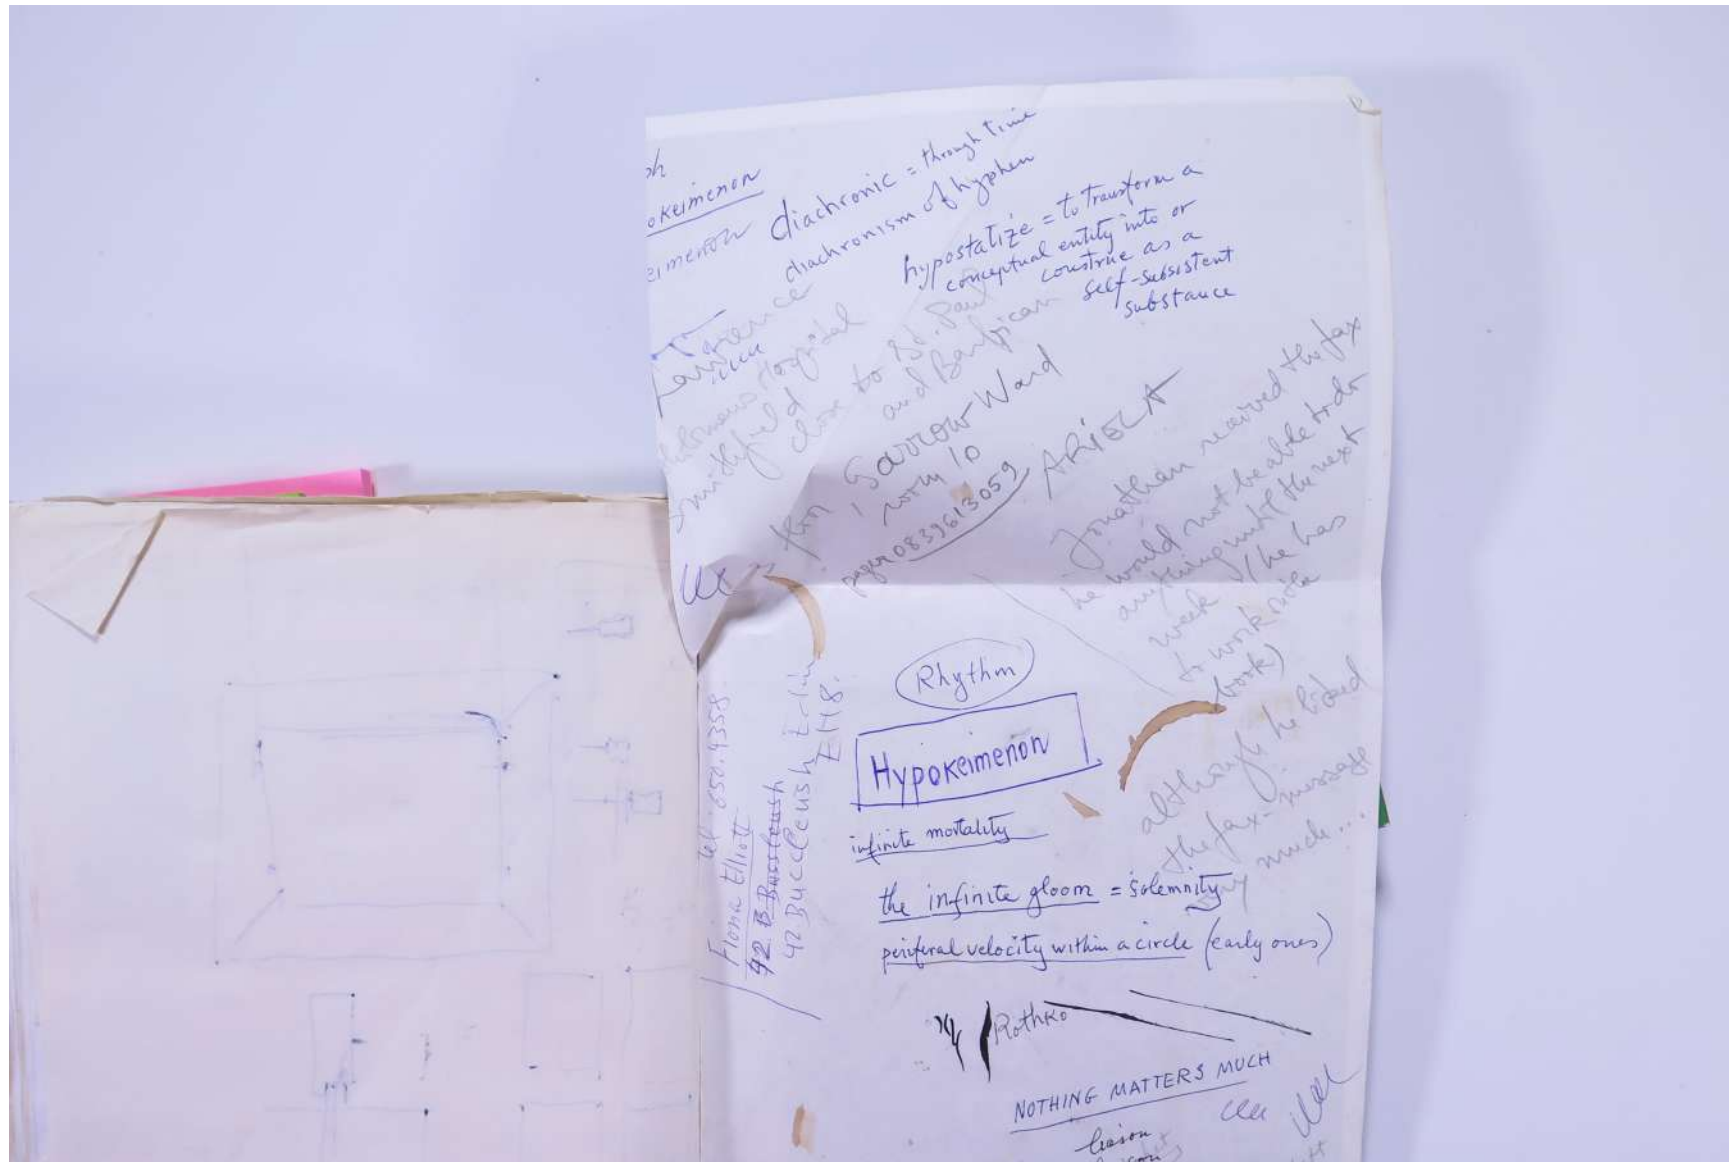 okeimenon
eimenon
diachronic = through time
diachronism of hyphen
hypostatize = to transform a
conceptual entity into or
construe as a
self-subsistent
substance
Hospital
Smithfield
close to St. Paul
and Barbican
Garrow Ward
pager 0839613059
ARIELA
Jonathan received the fax
he would not be able to do
anything until the next
week (he has
to work
book)
although he liked
the fax-message
very much...
tel. 650.4358
Fiona Elliott
42 B
42 Buccleush
EH8.
Rhythm
Hypokeimenon
infinite mortality
the infinite gloom = solemnity
periferal velocity within a circle (early ones)
Rothko
NOTHING MATTERS MUCH